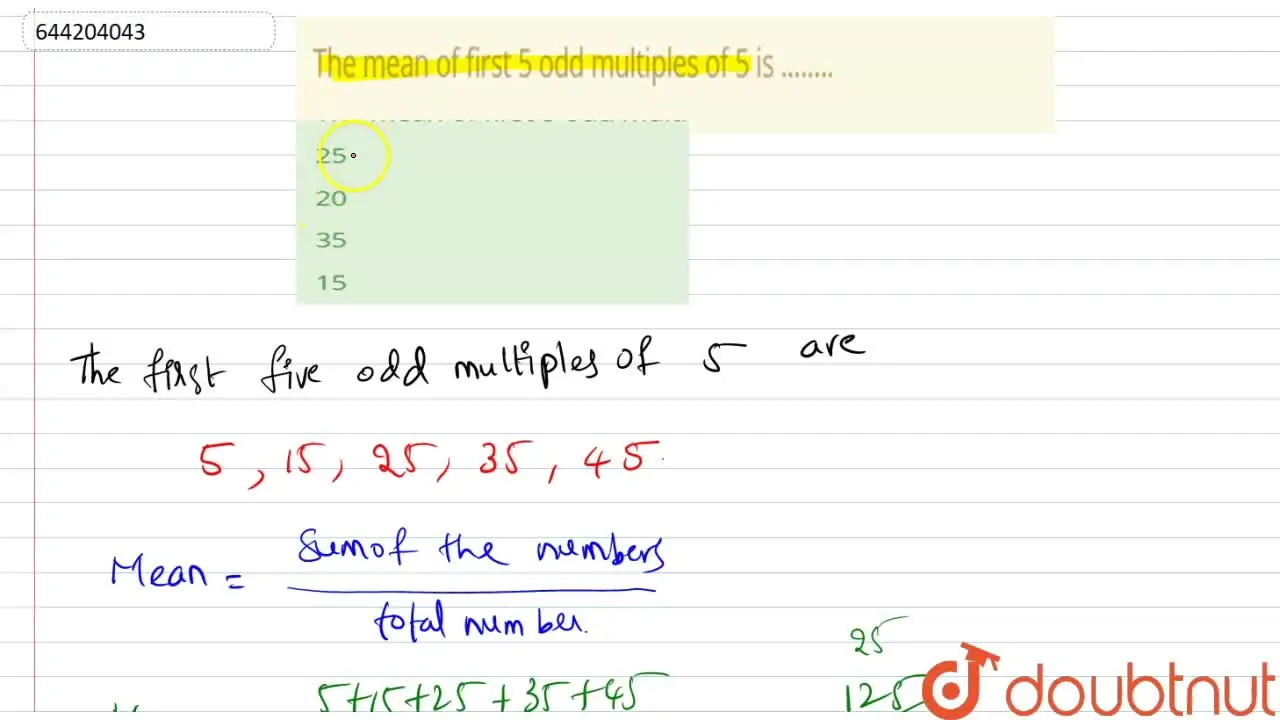 644204043
The mean of first 5 odd multiples of 5 is ........
25
20
35
15
The first five odd multiples of 5 are
5, 15, 25, 35, 45.
Mean = Sum of the numbers
total number.
25
5+15+25+35+45
125
doubtnut